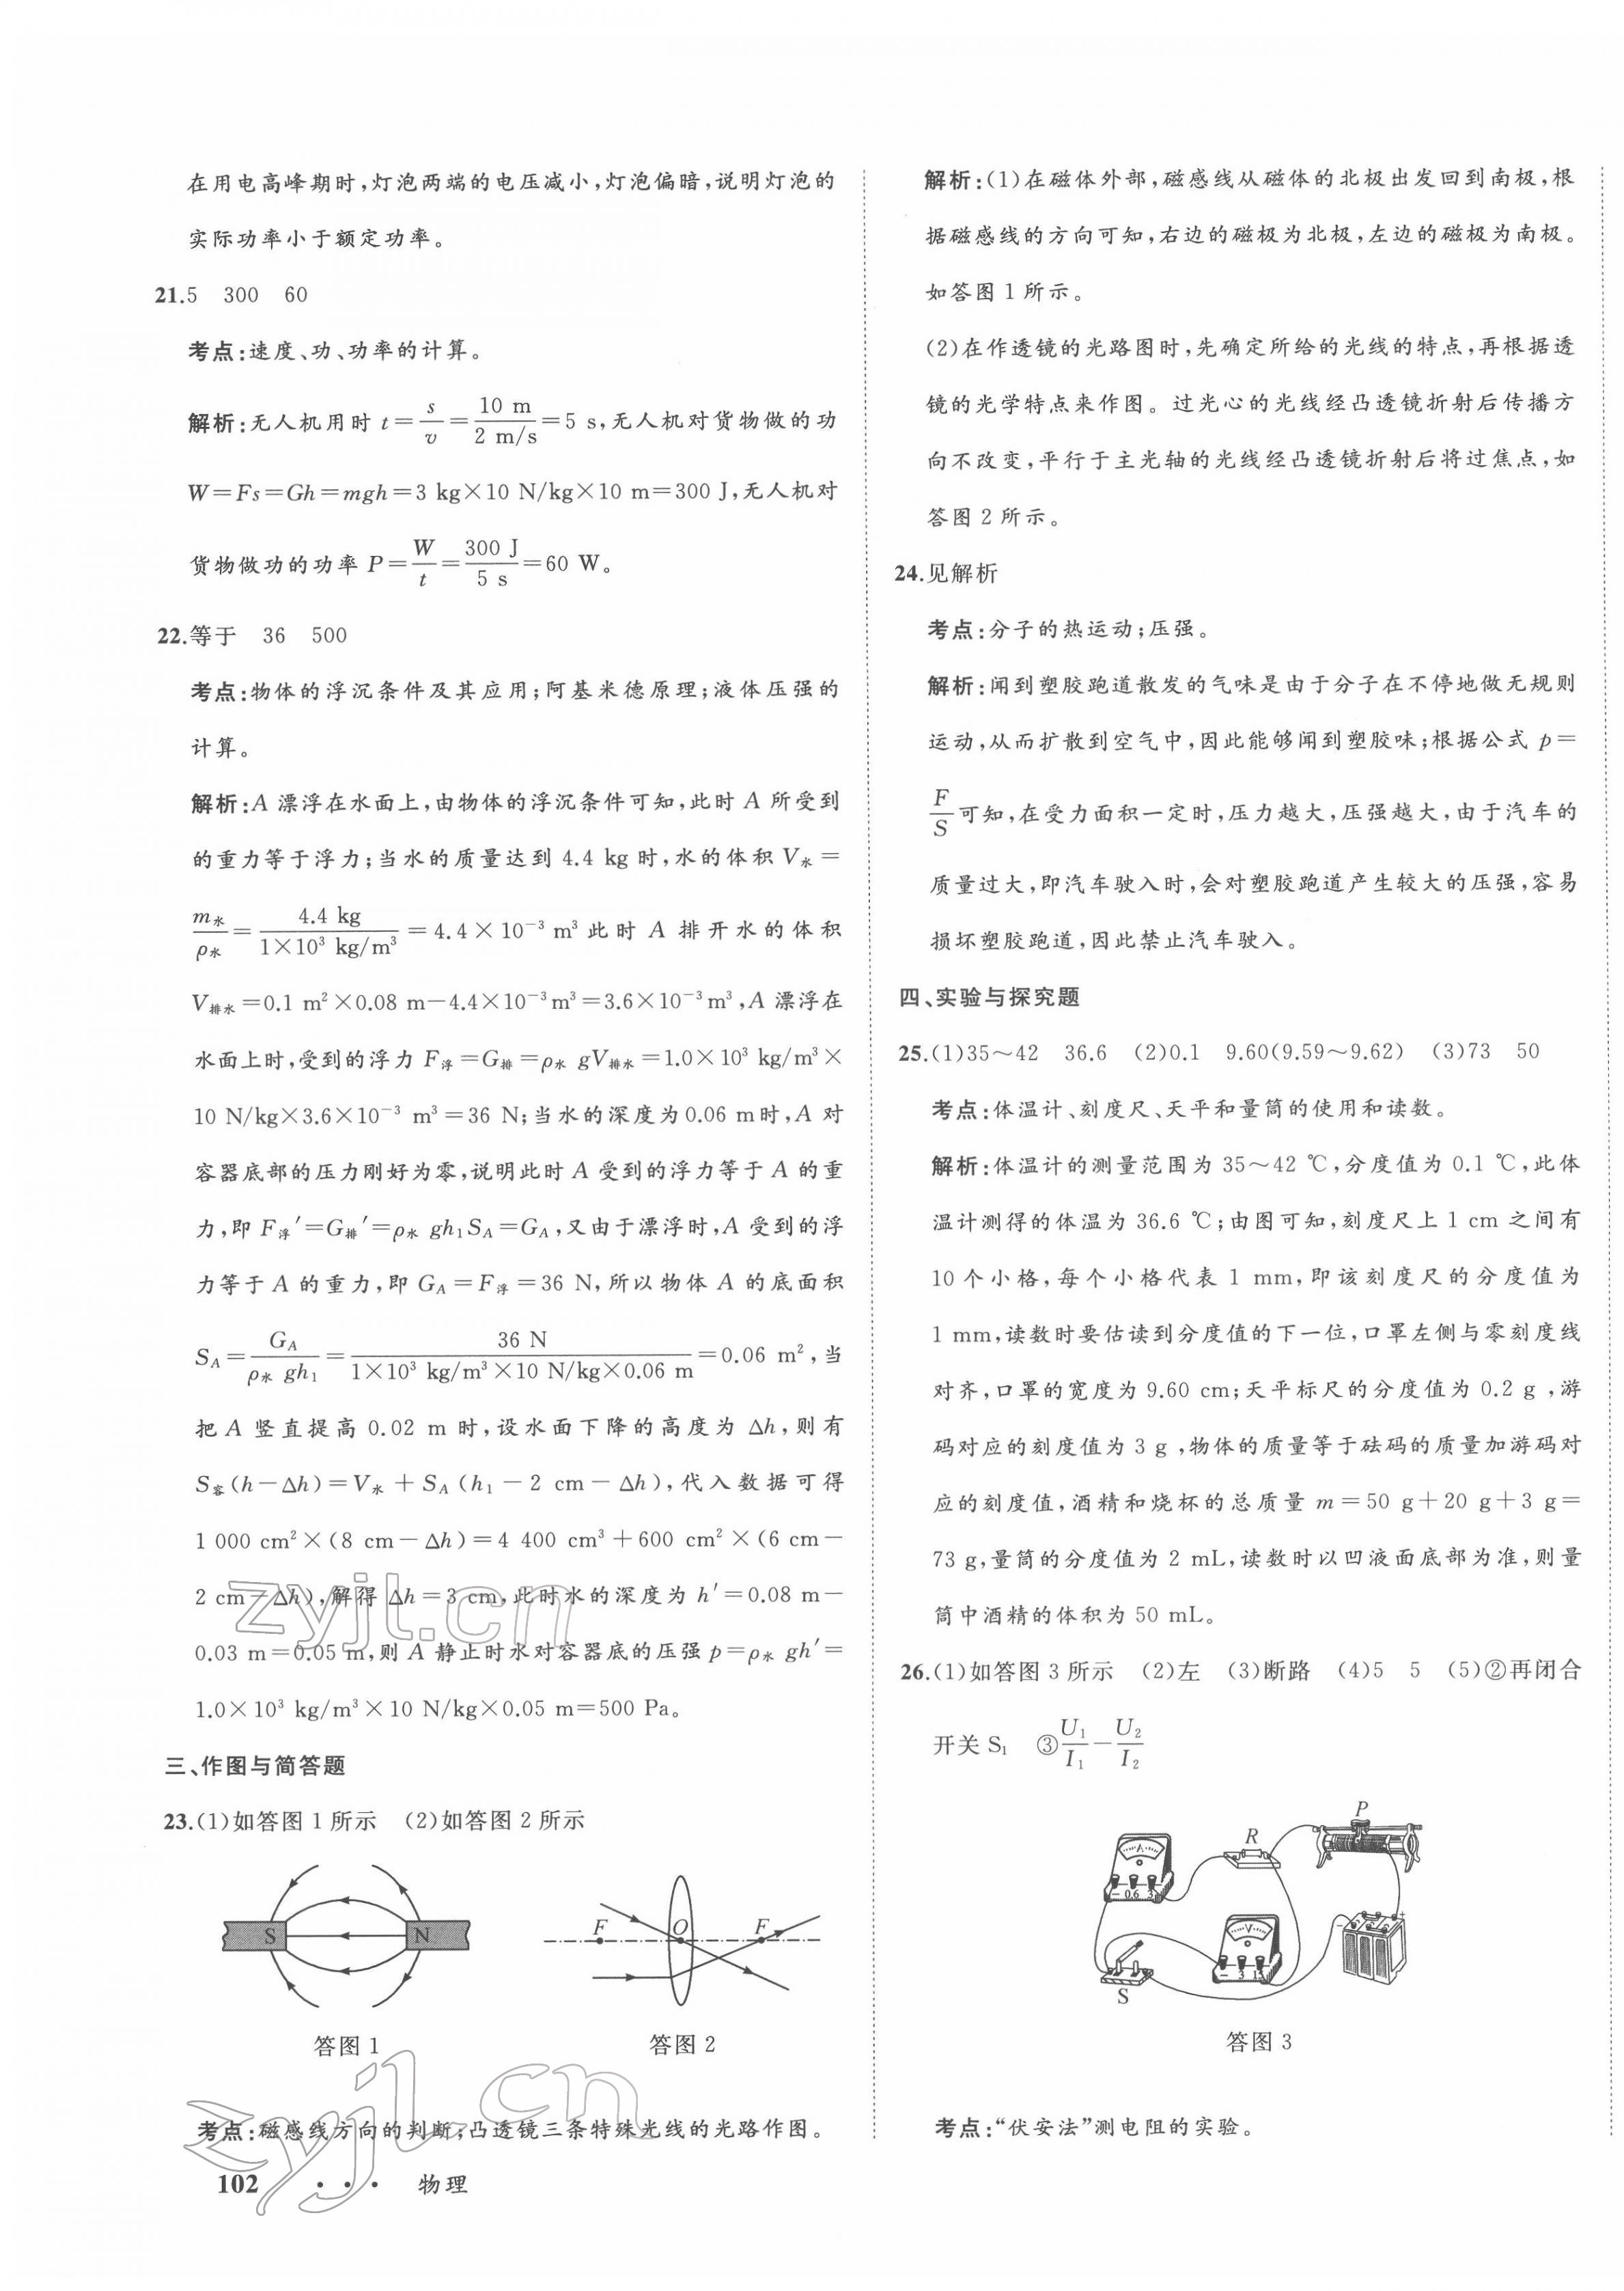 在用电高峰期时,灯泡两端的电压减小,灯泡偏暗,说明灯泡的
实际功率小于额定功率。
21.5 300 60
考点:速度、功、功率的计算。
解析:无人机用时 t=s/v=10 m/2 m/s=5 s,无人机对货物做的功
W=Fs=Gh=mgh=3 kg×10 N/kg×10 m=300 J,无人机对
货物做功的功率 P=W/t=300 J/5 s=60 W。
22.等于 36 500
考点:物体的浮沉条件及其应用;阿基米德原理;液体压强的
计算。
解析:A 漂浮在水面上,由物体的浮沉条件可知,此时 A 所受到
的重力等于浮力;当水的质量达到 4.4 kg 时,水的体积 V水=
m水/ρ水=4.4 kg/1×10³ kg/m³=4.4×10⁻³ m³ 此时 A 排开水的体积
V排水=0.1 m²×0.08 m-4.4×10⁻³ m³=3.6×10⁻³ m³,A 漂浮在
水面上时,受到的浮力 F浮=G排=ρ水 gV排水=1.0×10³ kg/m³×
10 N/kg×3.6×10⁻³ m³=36 N;当水的深度为0.06 m时,A 对
容器底部的压力刚好为零,说明此时 A 受到的浮力等于 A 的重
力,即 F浮′=G排′=ρ水 gh₁S_A=G_A,又由于漂浮时,A 受到的浮
力等于 A 的重力,即 G_A=F浮=36 N,所以物体 A 的底面积
S_A=G_A/ρ水 gh₁=36 N/1×10³ kg/m³×10 N/kg×0.06 m=0.06 m²,当
把 A 竖直提高 0.02 m 时,设水面下降的高度为 Δh,则有
S容(h-Δh)=V水+S_A(h₁-2 cm-Δh),代入数据可得
1 000 cm²×(8 cm-Δh)=4 400 cm³+600 cm²×(6 cm-
2 cm-Δh),解得 Δh=3 cm,此时水的深度为 h′=0.08 m-
0.03 m=0.05 m,则 A 静止时水对容器底的压强 p=ρ水 gh′=
1.0×10³ kg/m³×10 N/kg×0.05 m=500 Pa。
三、作图与简答题
23.(1)如答图 1 所示 (2)如答图 2 所示
S N
F O F
答图 1 答图 2
考点:磁感线方向的判断;凸透镜三条特殊光线的光路作图。
102 ··· 物理
解析:(1)在磁体外部,磁感线从磁体的北极出发回到南极,根
据磁感线的方向可知,右边的磁极为北极,左边的磁极为南极。
如答图 1 所示。
(2)在作透镜的光路图时,先确定所给的光线的特点,再根据透
镜的光学特点来作图。过光心的光线经凸透镜折射后传播方
向不改变,平行于主光轴的光线经凸透镜折射后将过焦点,如
答图 2 所示。
24.见解析
考点:分子的热运动;压强。
解析:闻到塑胶跑道散发的气味是由于分子在不停地做无规则
运动,从而扩散到空气中,因此能够闻到塑胶味;根据公式 p=
F/S可知,在受力面积一定时,压力越大,压强越大,由于汽车的
质量过大,即汽车驶入时,会对塑胶跑道产生较大的压强,容易
损坏塑胶跑道,因此禁止汽车驶入。
四、实验与探究题
25.(1)35～42 36.6 (2)0.1 9.60(9.59～9.62) (3)73 50
考点:体温计、刻度尺、天平和量筒的使用和读数。
解析:体温计的测量范围为 35～42 ℃,分度值为 0.1 ℃,此体
温计测得的体温为 36.6 ℃;由图可知,刻度尺上 1 cm 之间有
10 个小格,每个小格代表 1 mm,即该刻度尺的分度值为
1 mm,读数时要估读到分度值的下一位,口罩左侧与零刻度线
对齐,口罩的宽度为 9.60 cm;天平标尺的分度值为 0.2 g,游
码对应的刻度值为 3 g,物体的质量等于砝码的质量加游码对
应的刻度值,酒精和烧杯的总质量 m=50 g+20 g+3 g=
73 g,量筒的分度值为 2 mL,读数时以凹液面底部为准,则量
筒中酒精的体积为 50 mL。
26.(1)如答图 3 所示 (2)左 (3)断路 (4)5 5 (5)②再闭合
开关 S₁ ③U₁/I₁-U₂/I₂
P
R
A
- 0.6 3
V
- 3 15
S
- +
答图 3
考点:“伏安法”测电阻的实验。
zyjl.cn
zyjl.cn